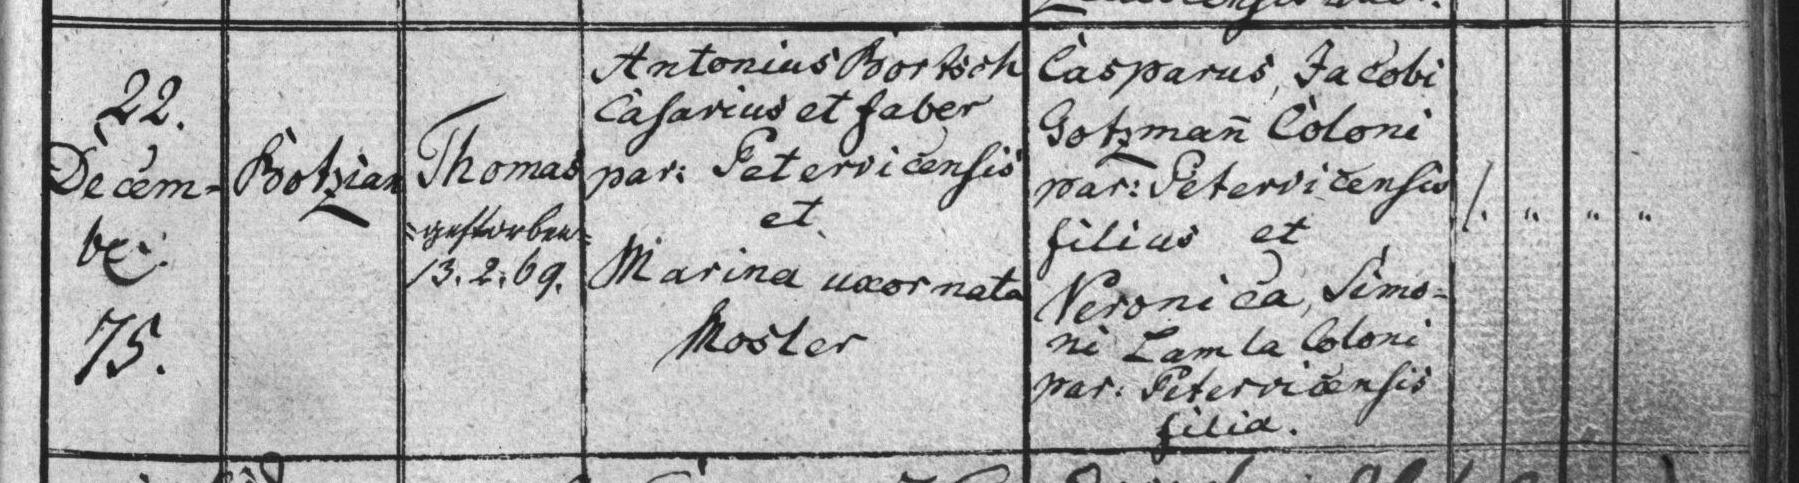 22.
Decem-
be:
75.
Botzian
Thomas
=gestorben=
13. 2. 69.
Antonius Bortsch
Casarius et faber
par: Petervicensis
et
Marina uxor nata
Mosler
Casparus, Jacobi
Gotzmañ Coloni
par: Petervicensis
filius et
Veronica, Simo-
ni Lamla Coloni
par: Petervicensis
filia.
1. " " "